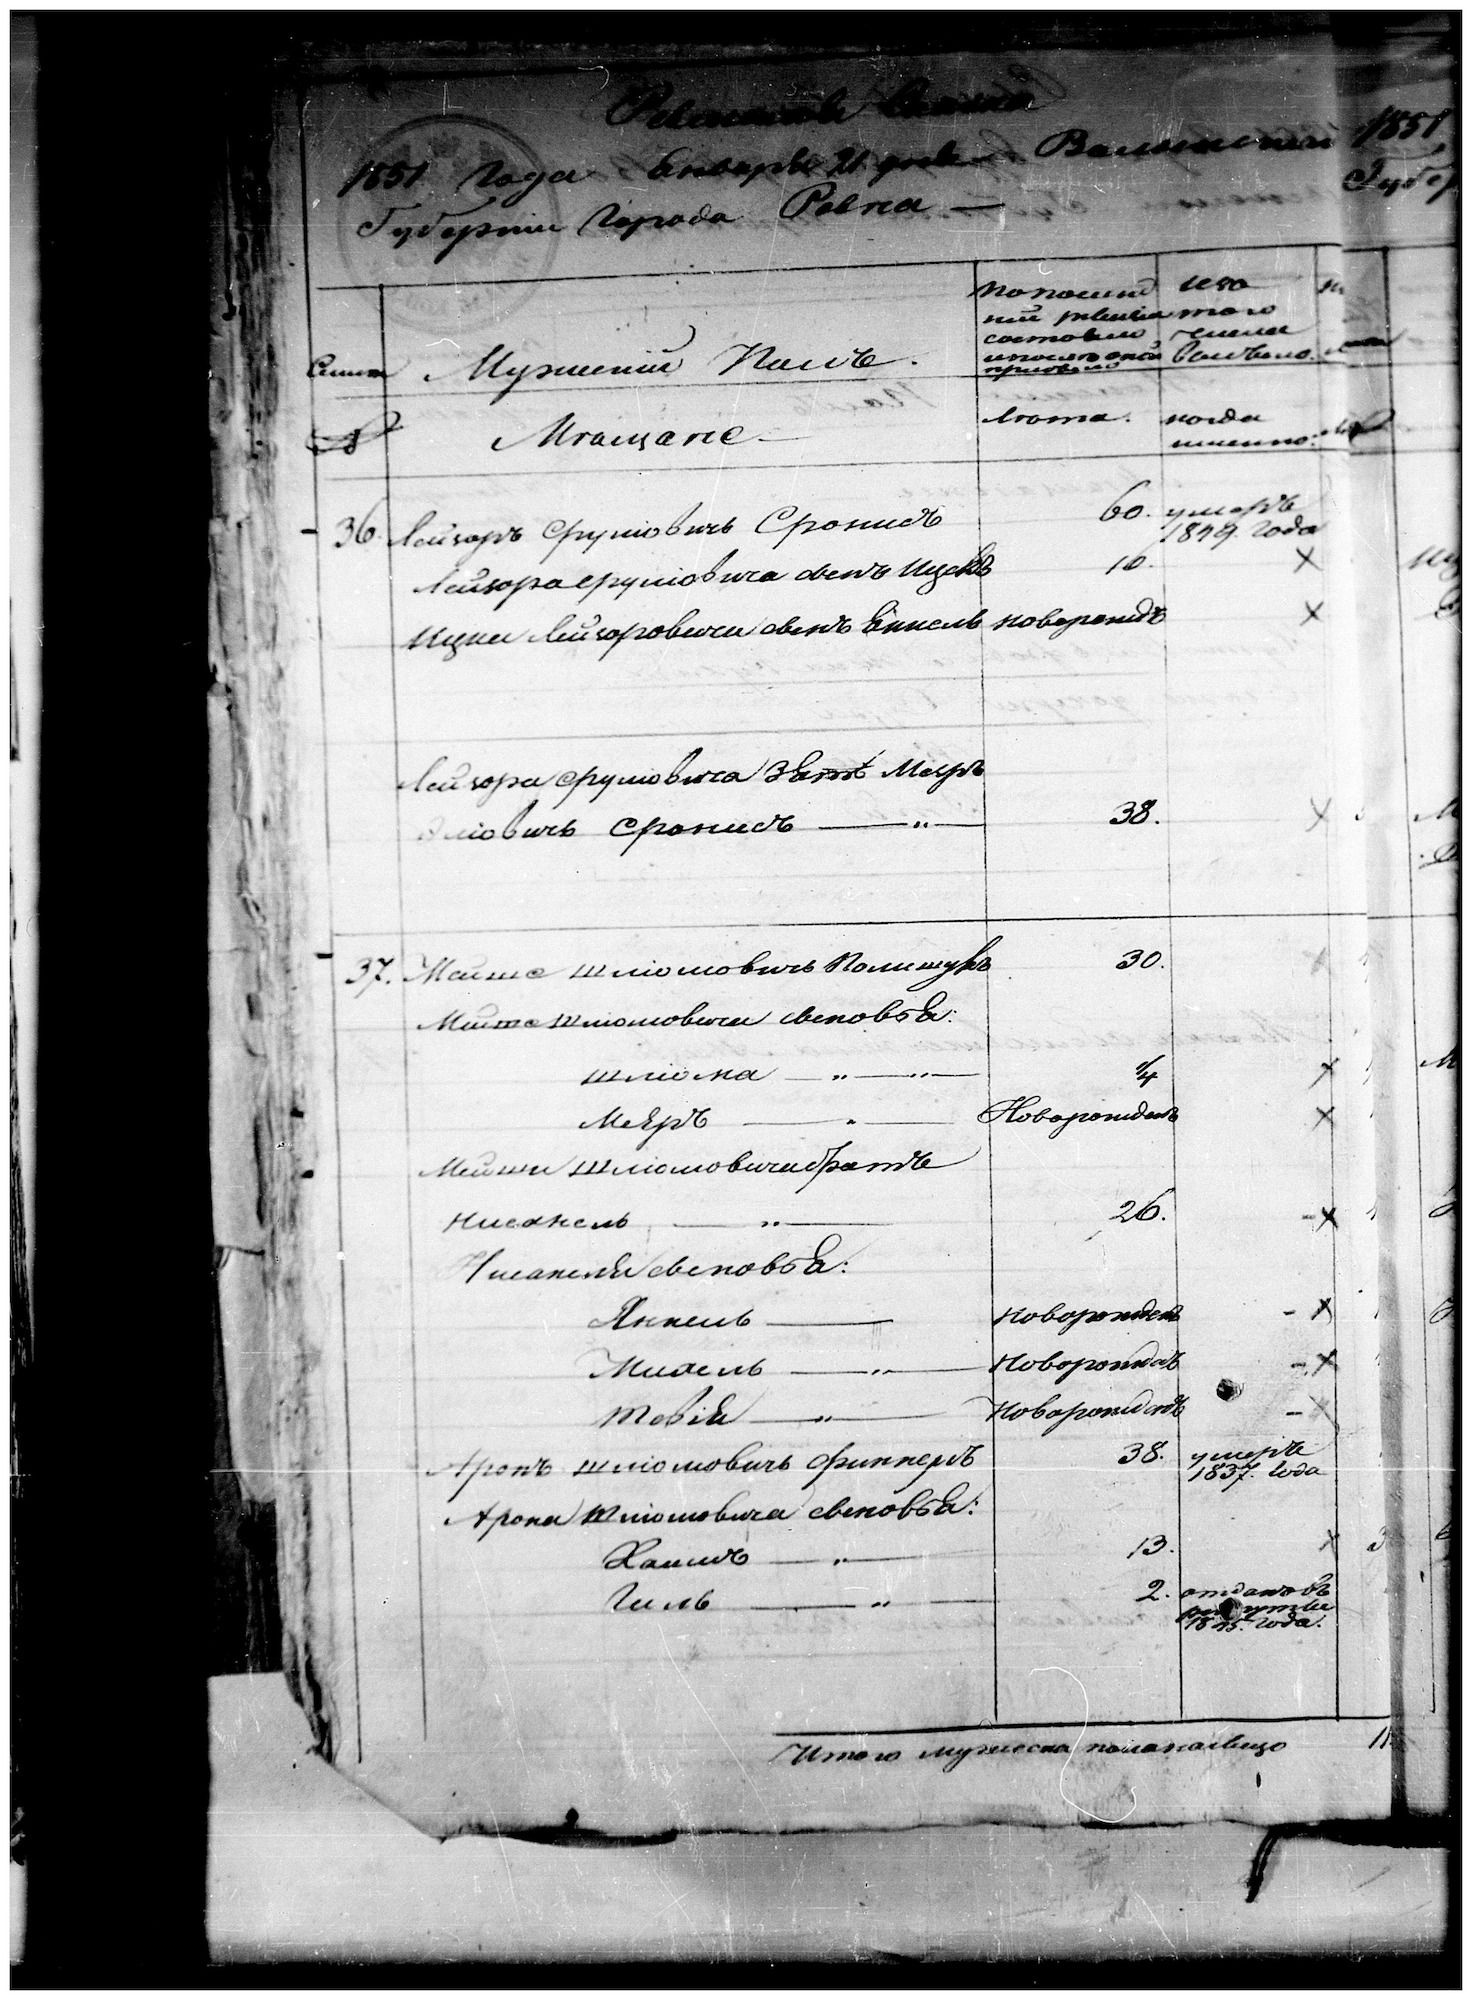 Ревизская Сказка
1851 Года Января 21 дня Волынской
Губернии Города Ровна —
Мужеский Полъ.
По последней ревизии состояло и после оной прибыло
Изъ того числа выбыло
Мещане
Лета.
когда именно:
36. Лейзоръ Сруліовичъ Спронисъ 60. умеръ 1849. Года
Лейзора Сруліовича сынъ Ицекъ 10. X
Ицки Лейзоровича сынъ Янкель новорожд X
Лейзора Сруліовича Зять Меэръ
Эліовичъ Спронисъ — " — 38. X
37. Мейше Шліомовичъ Полищукъ 30. X
Мейше Шліомовича сыновья:
Шліома — " — " — 1/4 X
Меэръ — " — Новорожденъ X
Мейши Шліомовича братъ
Нисанель — " — 26. - X
Нисанеля сыновья:
Янкель — новорожден - X
Михель — " — Новорожден - X
Товія — " — Новорожденъ - X
Аронъ Шліомовичъ 38. умеръ 1837. Года
Арона Шліомовича сыновья:
Хаимъ — " — 13. X 3
Гиль — " — 2. отданъ въ рекруты Года.
Итого мужеска пола налицо 11
1851
Губер